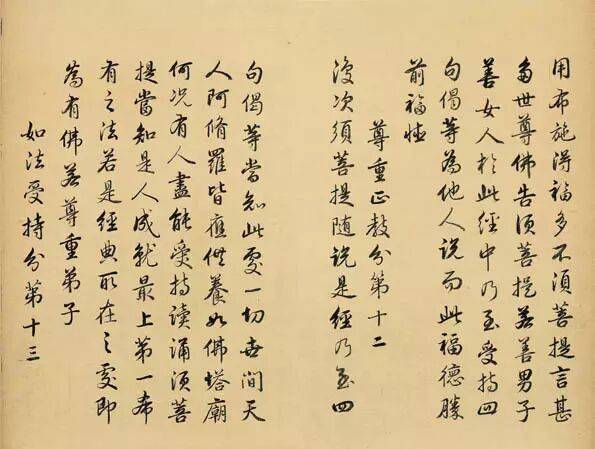 用布施得福多不須菩提言甚
多世尊佛告須菩提若善男子
善女人於此經中乃至受持四
句偈等為他人說而此福德勝
前福德
尊重正教分第十二
復次須菩提随說是經乃至四
句偈等當知此處一切世間天
人阿脩羅皆應供養如佛塔廟
何況有人盡能受持讀誦須菩
提當知是人成就最上第一希
有之法若是經典所在之處即
為有佛若尊重弟子
如法受持分第十三